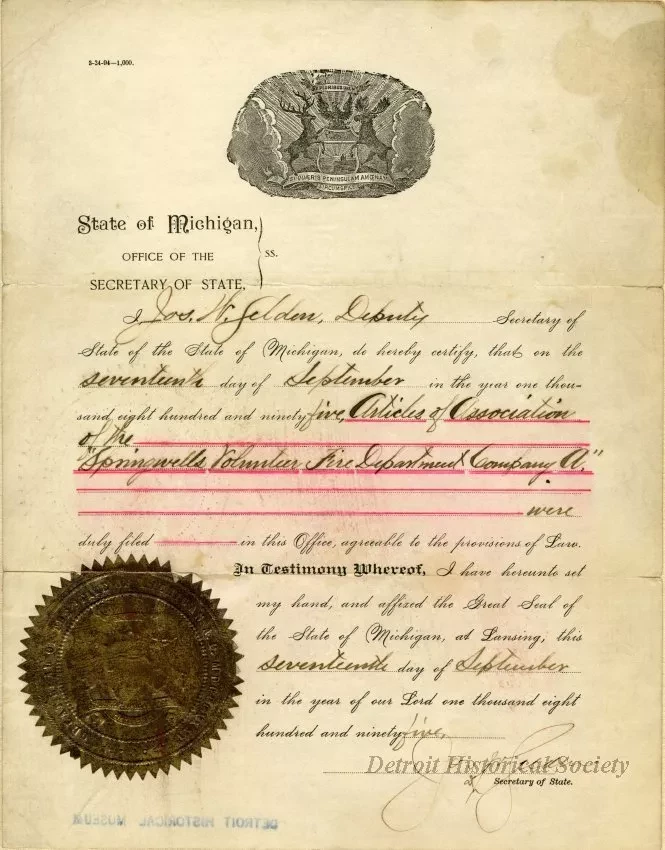 3-24-94—1,000.
SI QUÆRIS PENINSULAM AMŒNAM
State of Michigan,
OFFICE OF THE
ss.
SECRETARY OF STATE,
I, Jos. W. Selden, Deputy Secretary of
State of the State of Michigan, do hereby certify, that on the
seventeenth day of September in the year one thou-
sand eight hundred and ninety five, Articles of Association
of the
"Springwells Volunteer Fire Department Company A."
were
duly filed in this Office, agreeable to the provisions of Law.
In Testimony Whereof, I have hereunto set
my hand, and affixed the Great Seal of
the State of Michigan, at Lansing, this
seventeenth day of September
in the year of our Lord one thousand eight
hundred and ninety five,
Detroit Historical Society
Secretary of State.
DETROIT HISTORICAL MUSEUM